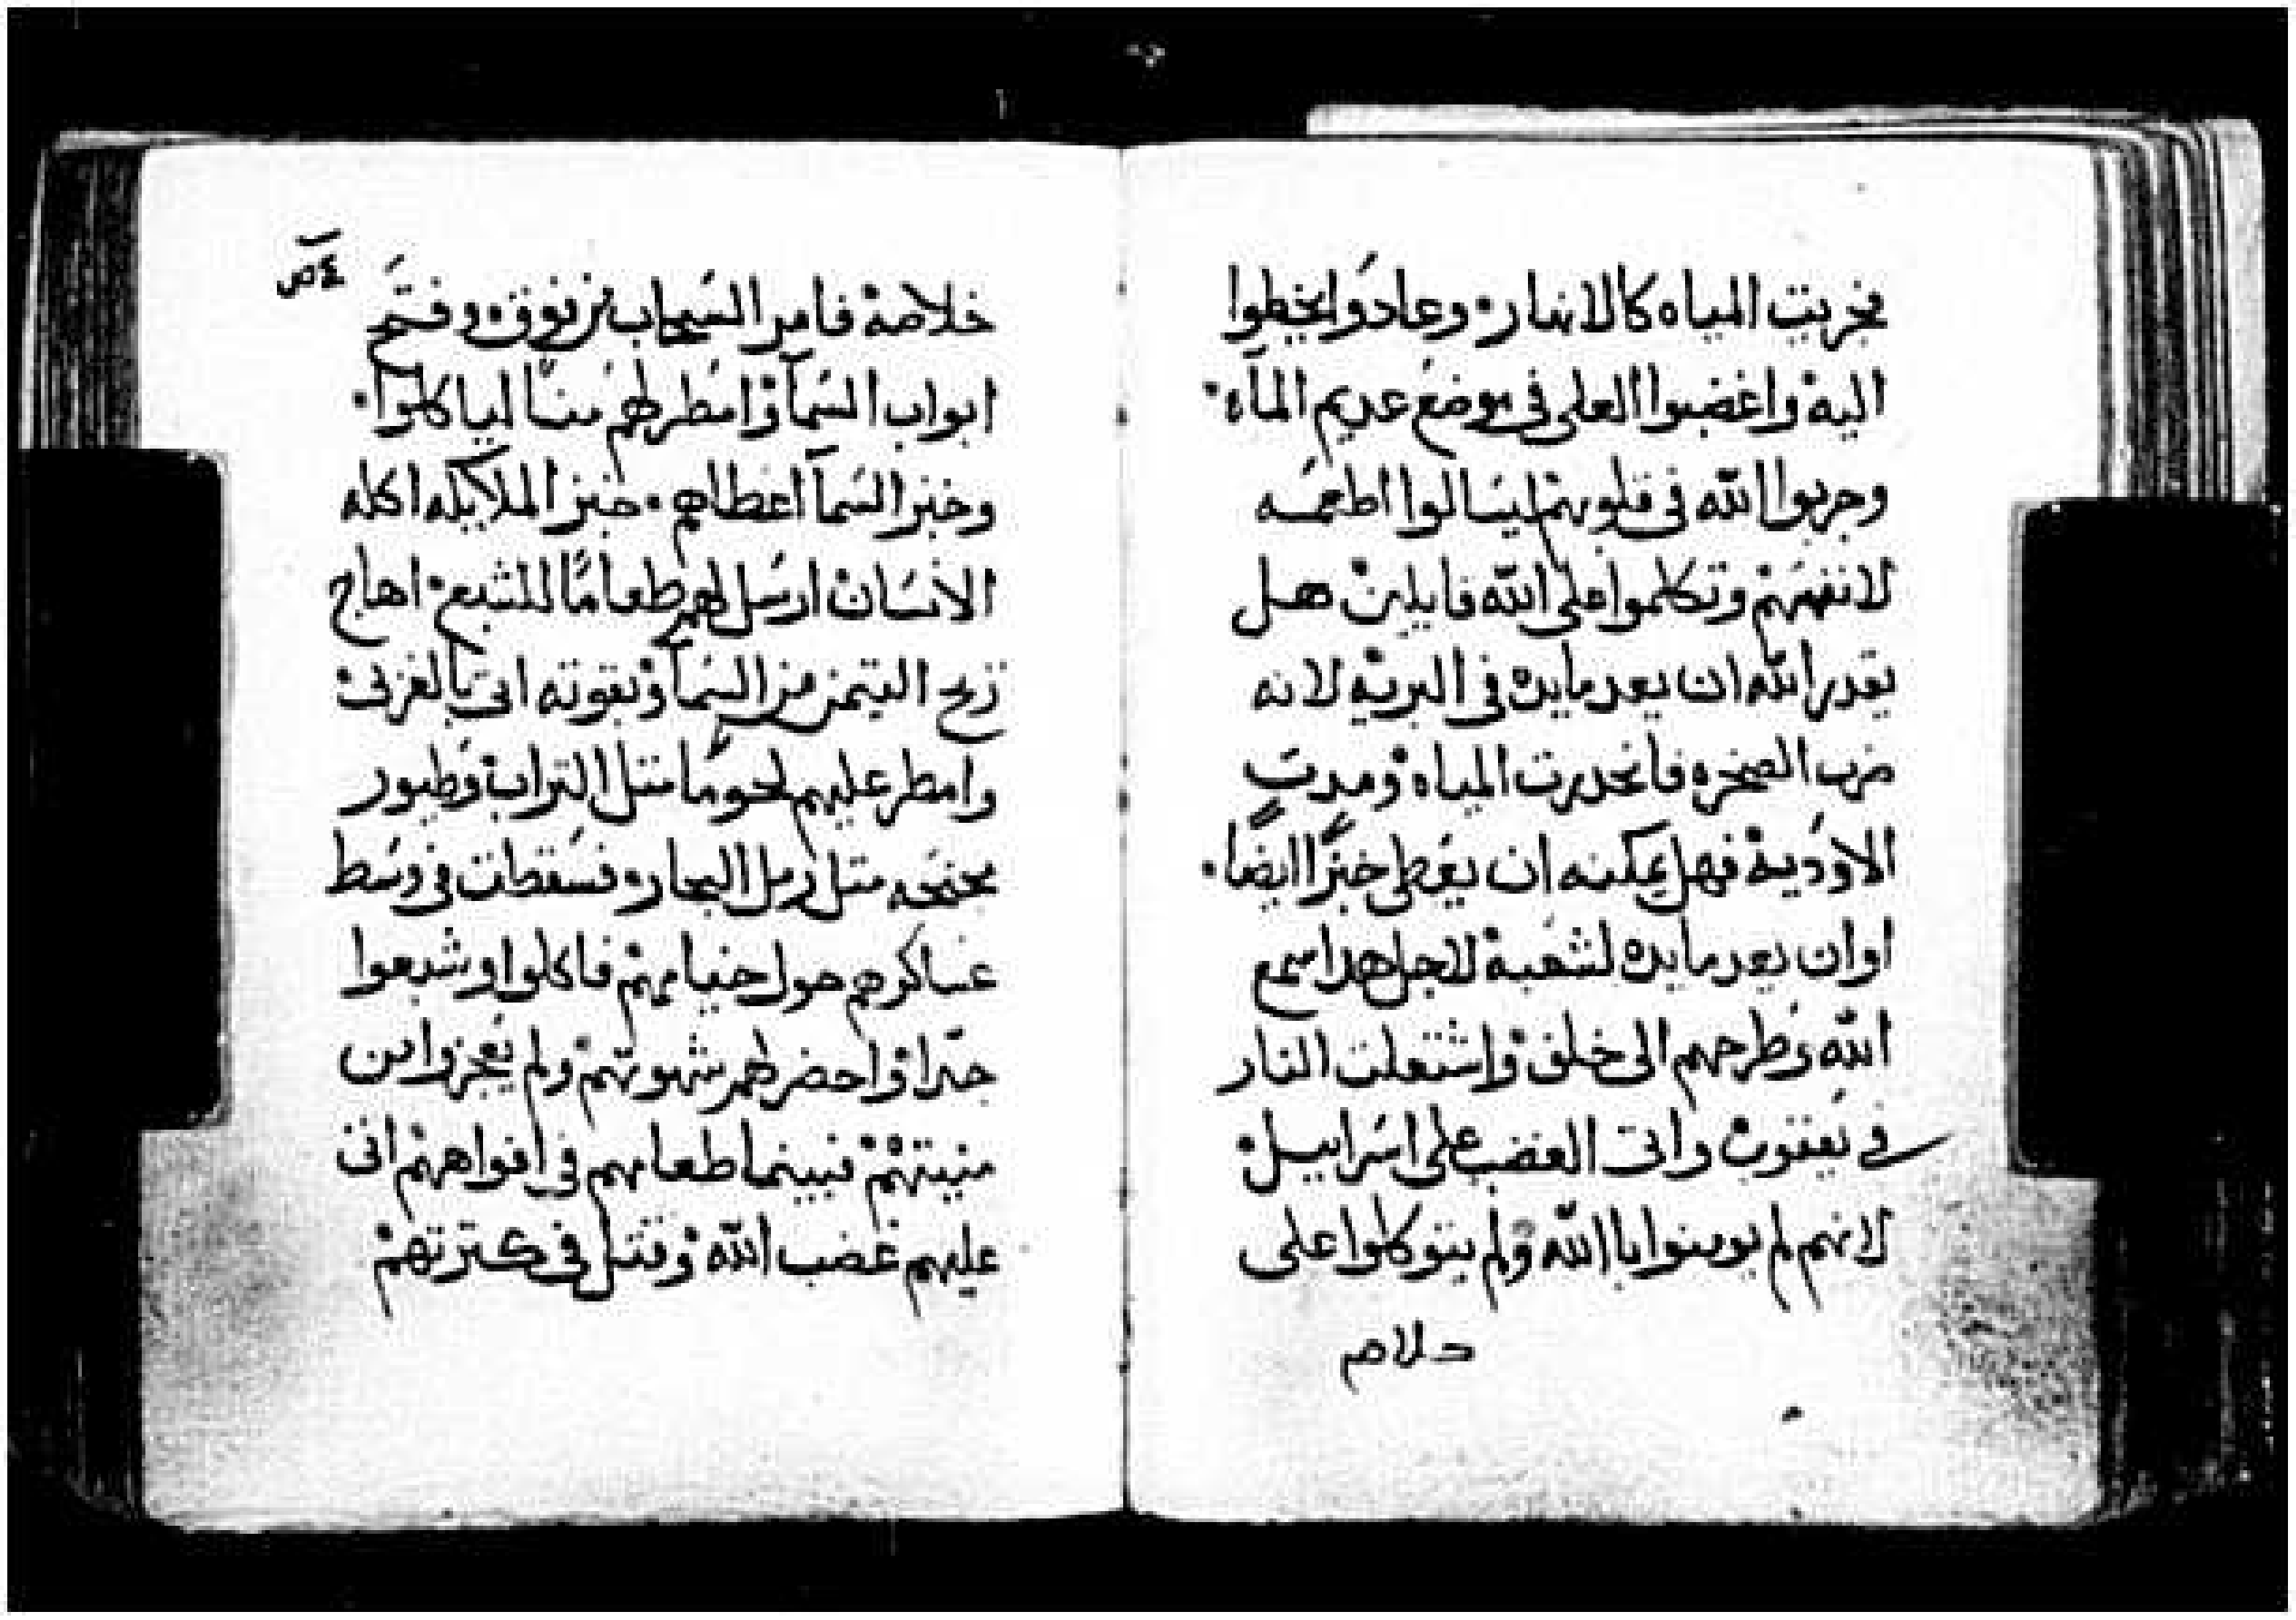 فجريت المياه كالانهار وعادوا يخطوا
اليه واغضبوا العلى فى موضع عديم الماء
وجربوا الله فى قلوبهم ليسالوا اطعمه
لانفسهم وتكلموا على الله قايلين هل
يقدر الله ان يعد مايده فى البريه لانه
ضرب الصخره فانحدرت المياه ومدت
الاوديه فهل يمكنه ان يعطى خبزًا ايضًا
او ان يعد مايده لشعبه لاجل هدا سمع
الله وطرحهم الى خلف واشتعلت النار
فى يعقوب واتى الغضب على اسراييل
لانهم لم يومنوا باالله ولم يتوكلوا على
خلاصه فامر السحاب من فوق وفتح
ابواب السمآ وامطر لهم منًا لياكلوا
وخبز السمآ اعطاهم خبز الملايكه اكله
الانسان ارسل لهم طعامًا للشبع اهاج
ريح التيمن من السمآ وبقوته اتى بالغربى
وامطر عليهم لحومًا متل التراب وطيور
مجنحه متل رمل البحار فسقطت فى وسط
عساكرهم حول خيامهم فاكلوا وشبعوا
جدا واحضر لهم شهوتهم ولم يعجزوا من
منيتهم فبينما طعامهم فى افواههم اتى
عليهم غضب الله وقتل فى كترتهم